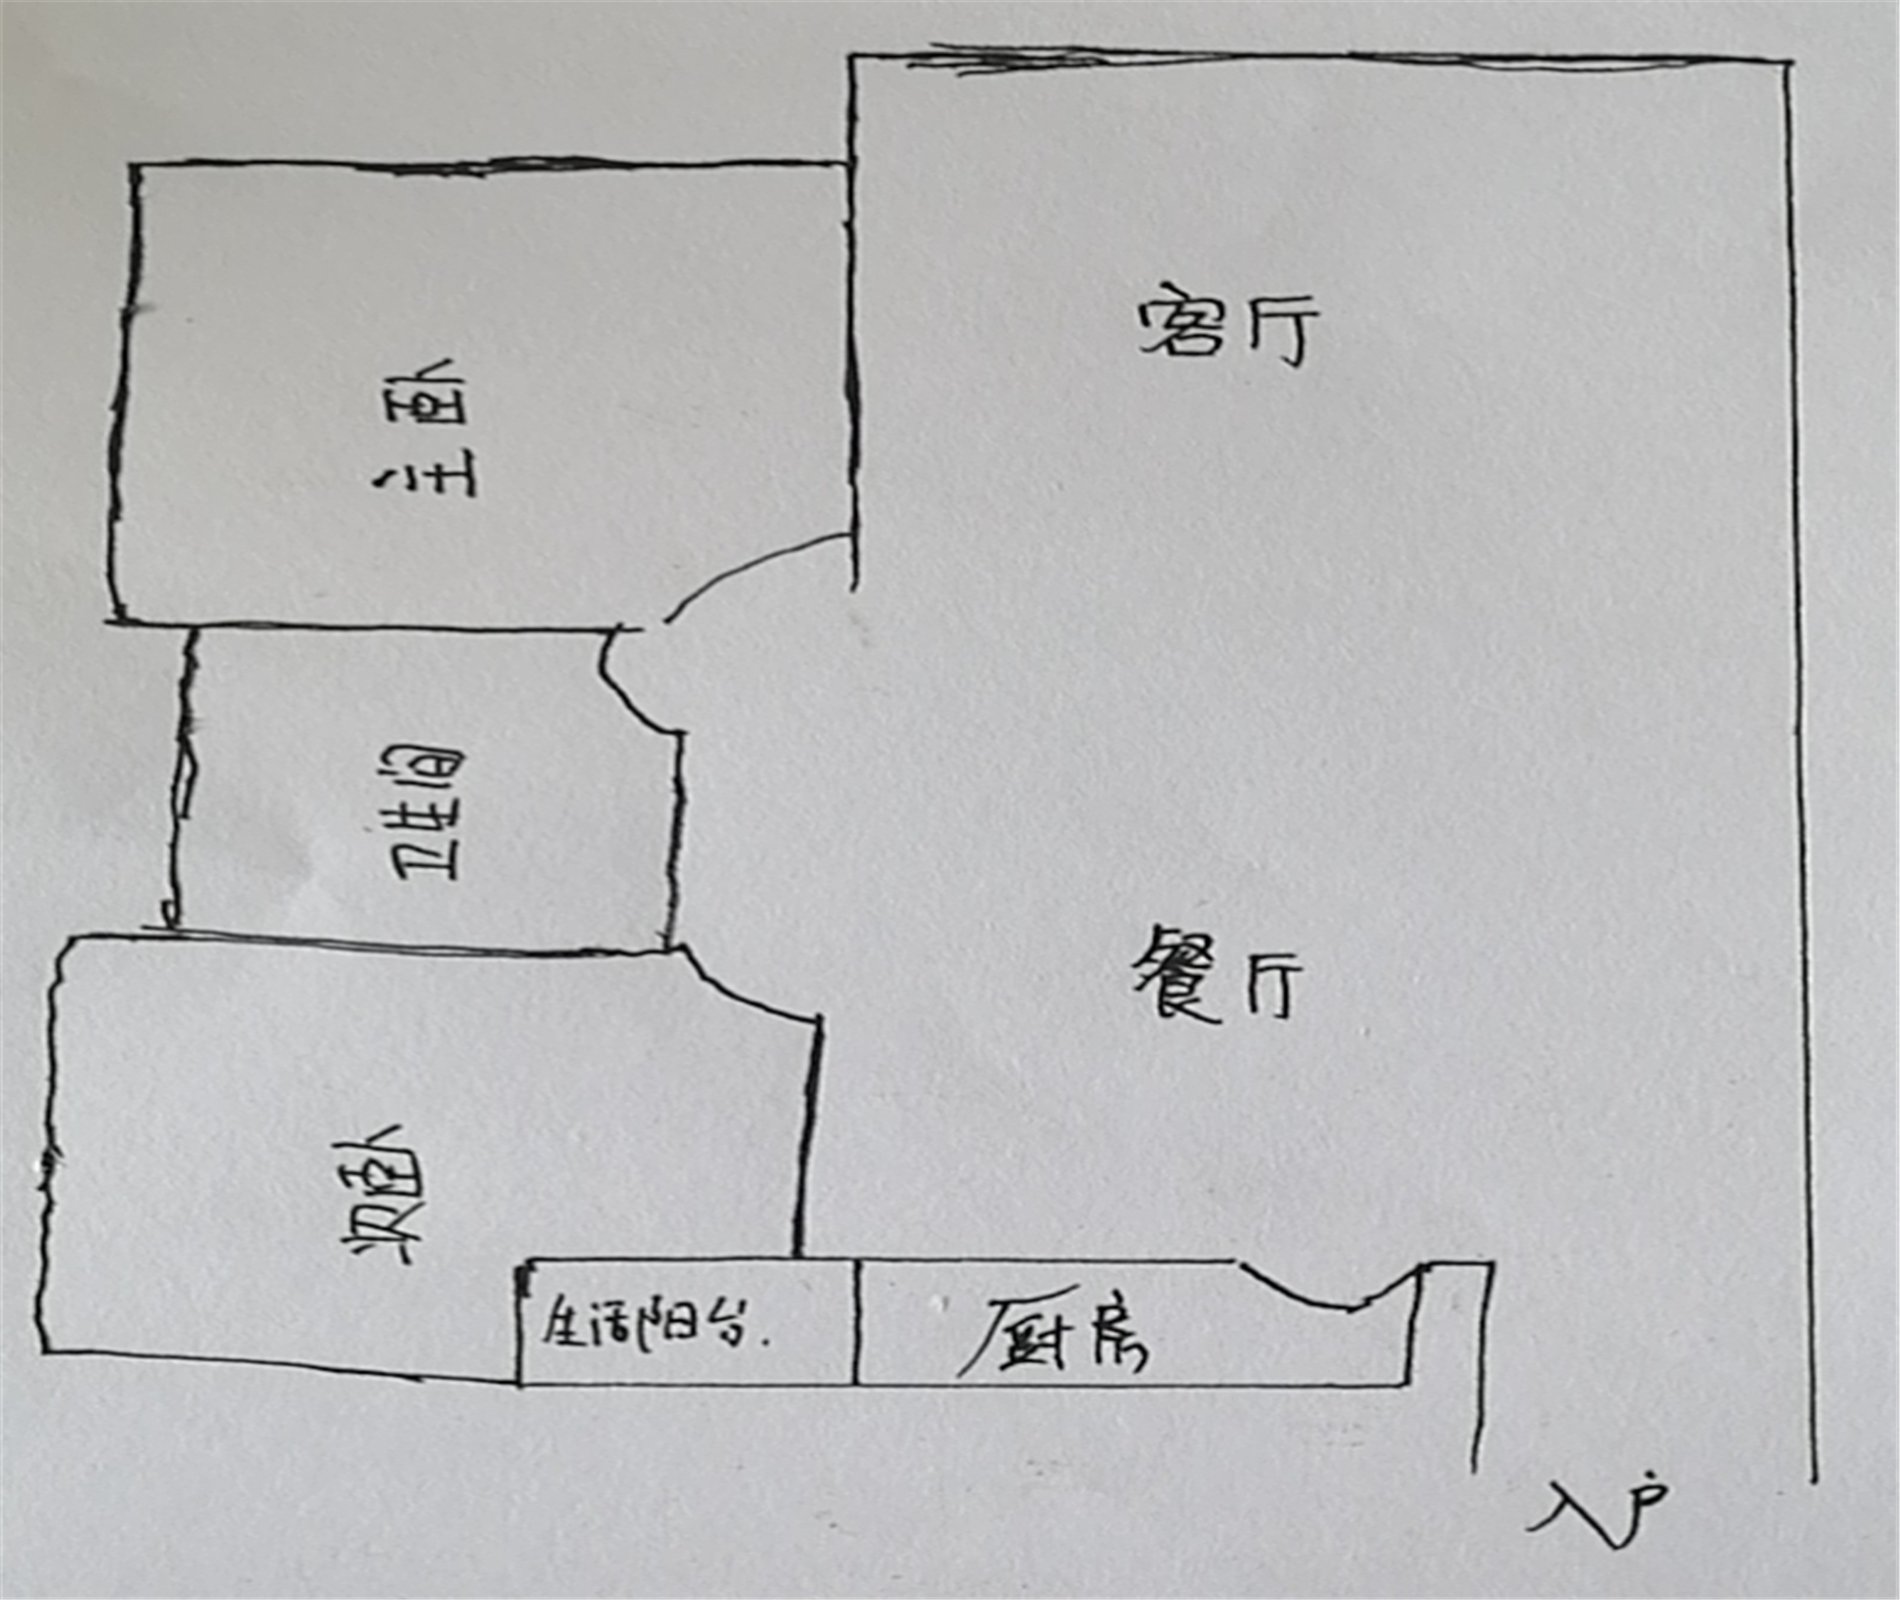 客厅
主卧
卫生间
餐厅
次卧
生活阳台.
厨房
入户